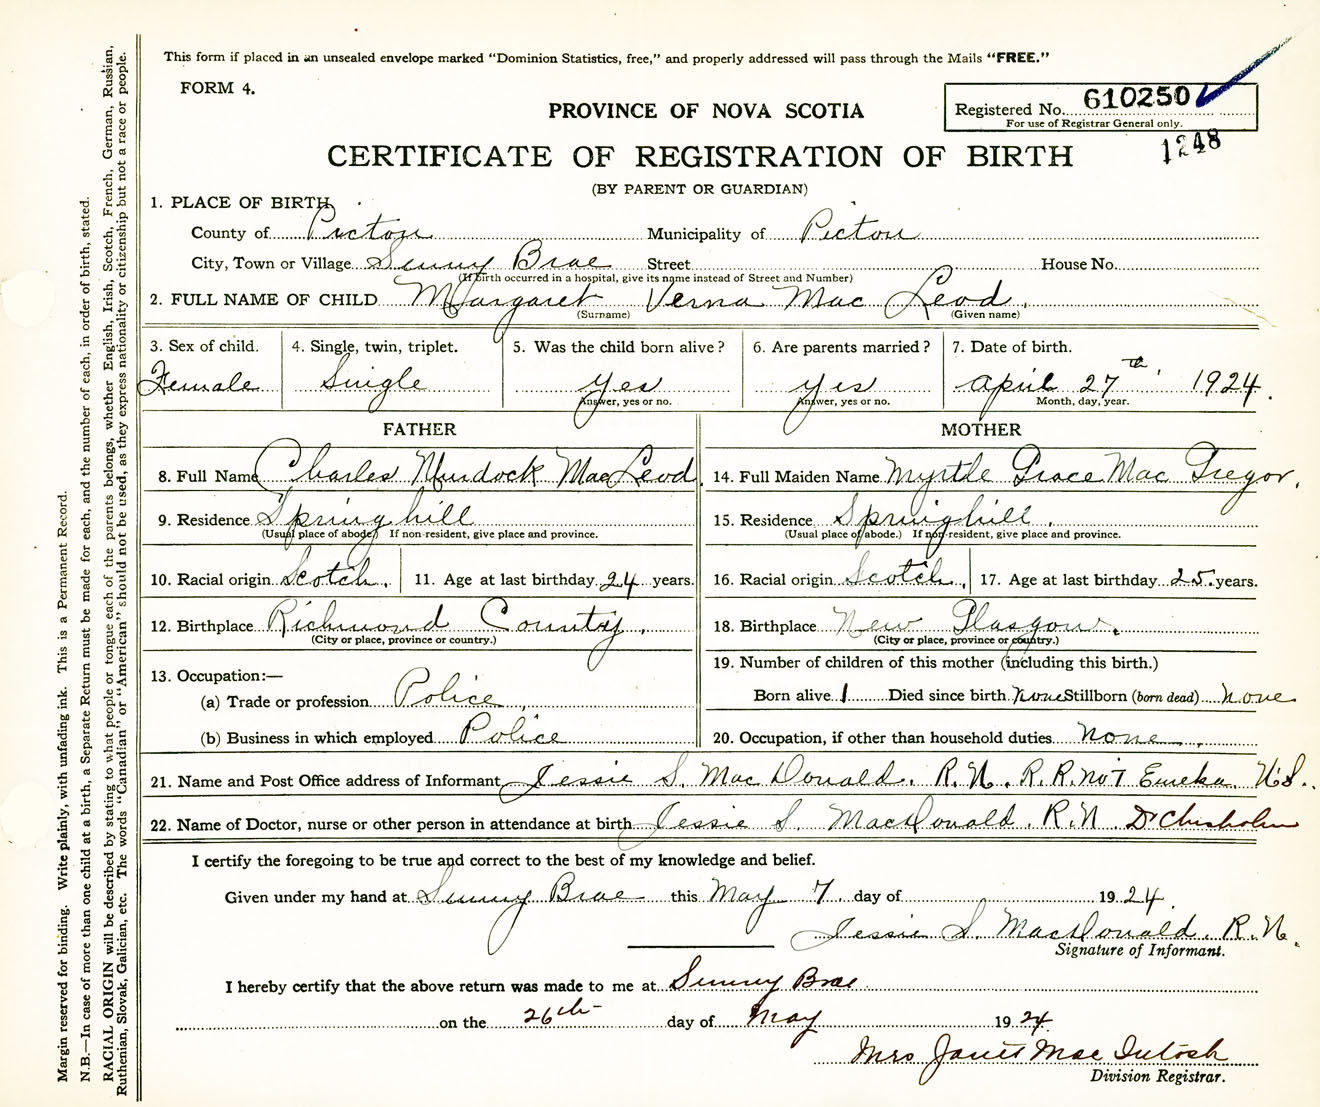 This form if placed in an unsealed envelope marked "Dominion Statistics, free," and properly addressed will pass through the Mails "FREE."
FORM 4.
PROVINCE OF NOVA SCOTIA
Registered No. 610250
For use of Registrar General only.
1248
CERTIFICATE OF REGISTRATION OF BIRTH
(BY PARENT OR GUARDIAN)
1. PLACE OF BIRTH
County of Pictou Municipality of Pictou
City, Town or Village Sunny Brae Street House No.
(If birth occurred in a hospital, give its name instead of Street and Number)
2. FULL NAME OF CHILD Margaret Verna Mac Leod.
(Surname) (Given name)
3. Sex of child. 4. Single, twin, triplet. 5. Was the child born alive? 6. Are parents married? 7. Date of birth.
Female Single Yes Yes April 27th, 1924.
Answer, yes or no. Answer, yes or no. Month, day, year.
FATHER MOTHER
8. Full Name Charles Murdock MacLeod. 14. Full Maiden Name Myrtle Grace Mac Gregor.
9. Residence Springhill 15. Residence Springhill.
(Usual place of abode.) If non-resident, give place and province. (Usual place of abode.) If non-resident, give place and province.
10. Racial origin Scotch. 11. Age at last birthday 24 years. 16. Racial origin Scotch. 17. Age at last birthday 25 years.
12. Birthplace Richmond County. 18. Birthplace New Glasgow.
(City or place, province or country.) (City or place, province or country.)
13. Occupation:— 19. Number of children of this mother (including this birth.)
(a) Trade or profession Police Born alive 1 Died since birth none Stillborn (born dead) none
(b) Business in which employed Police 20. Occupation, if other than household duties none.
21. Name and Post Office address of Informant Jessie S. MacDonald. R.N. R.R. No 1 Eureka N.S.
22. Name of Doctor, nurse or other person in attendance at birth Jessie S. MacDonald. R.N. Dr Chisholm
I certify the foregoing to be true and correct to the best of my knowledge and belief.
Given under my hand at Sunny Brae this May 7. day of 1924.
Jessie S. MacDonald. R.N.
Signature of Informant.
I hereby certify that the above return was made to me at Sunny Brae
on the 26th day of May 1924.
Mrs Janet Mac Intosh
Division Registrar.
Margin reserved for binding. Write plainly, with unfading ink. This is a Permanent Record.
N.B.—In case of more than one child at a birth, a Separate Return must be made for each, and the number of each, in order of birth, stated.
RACIAL ORIGIN will be described by stating to what people or tongue each of the parents belongs, whether English, Irish, Scotch, French, German, Russian,
Ruthenian, Slovak, Galician, etc. The words "Canadian" or "American" should not be used, as they express nationality or citizenship but not a race or people.